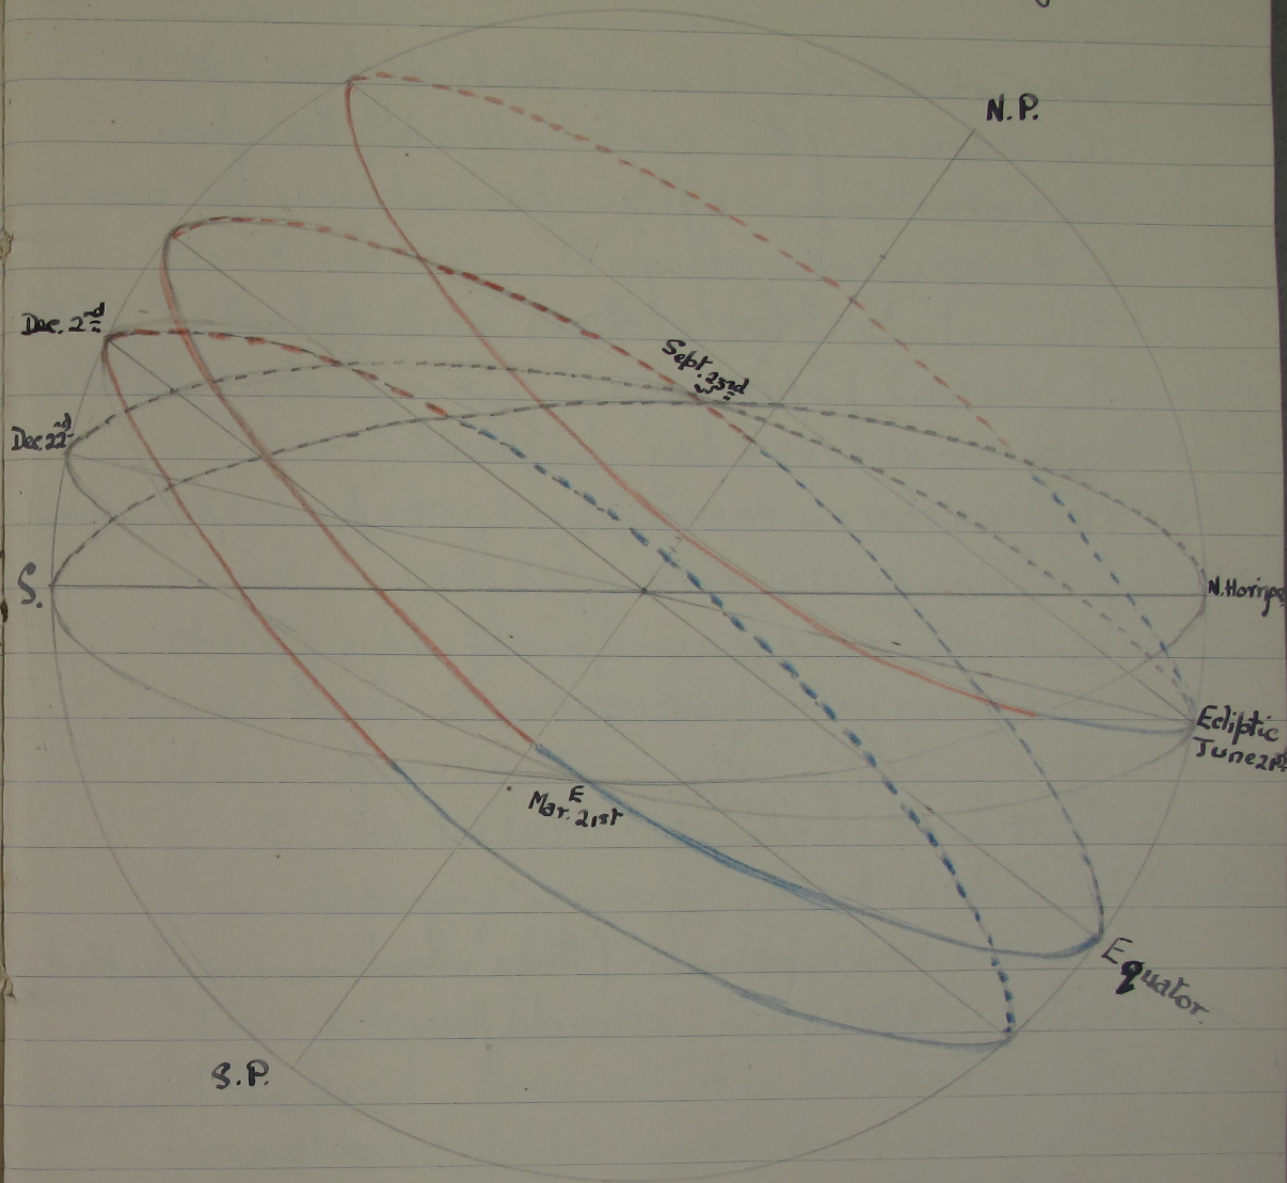 N.P.
Dec. 2nd
Sept.
23rd
Dec 22nd
S.
N. Horizon
Ecliptic
June 21st
E
Mar. 21st
Equator
S.P.